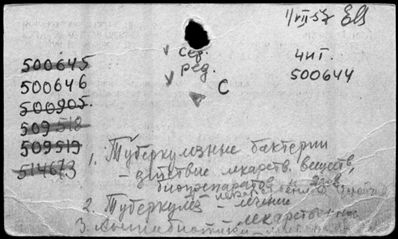 1/VII-57
сер.
ред.
С
чит.
500644
500645
500646
500905.
509518
509519
514673
1. Туберкулезные бактерии
- действие лекарств. веществ,
биопрепаратов
2. Туберкулез - лечение
лекарственное
3. Антибиотики -